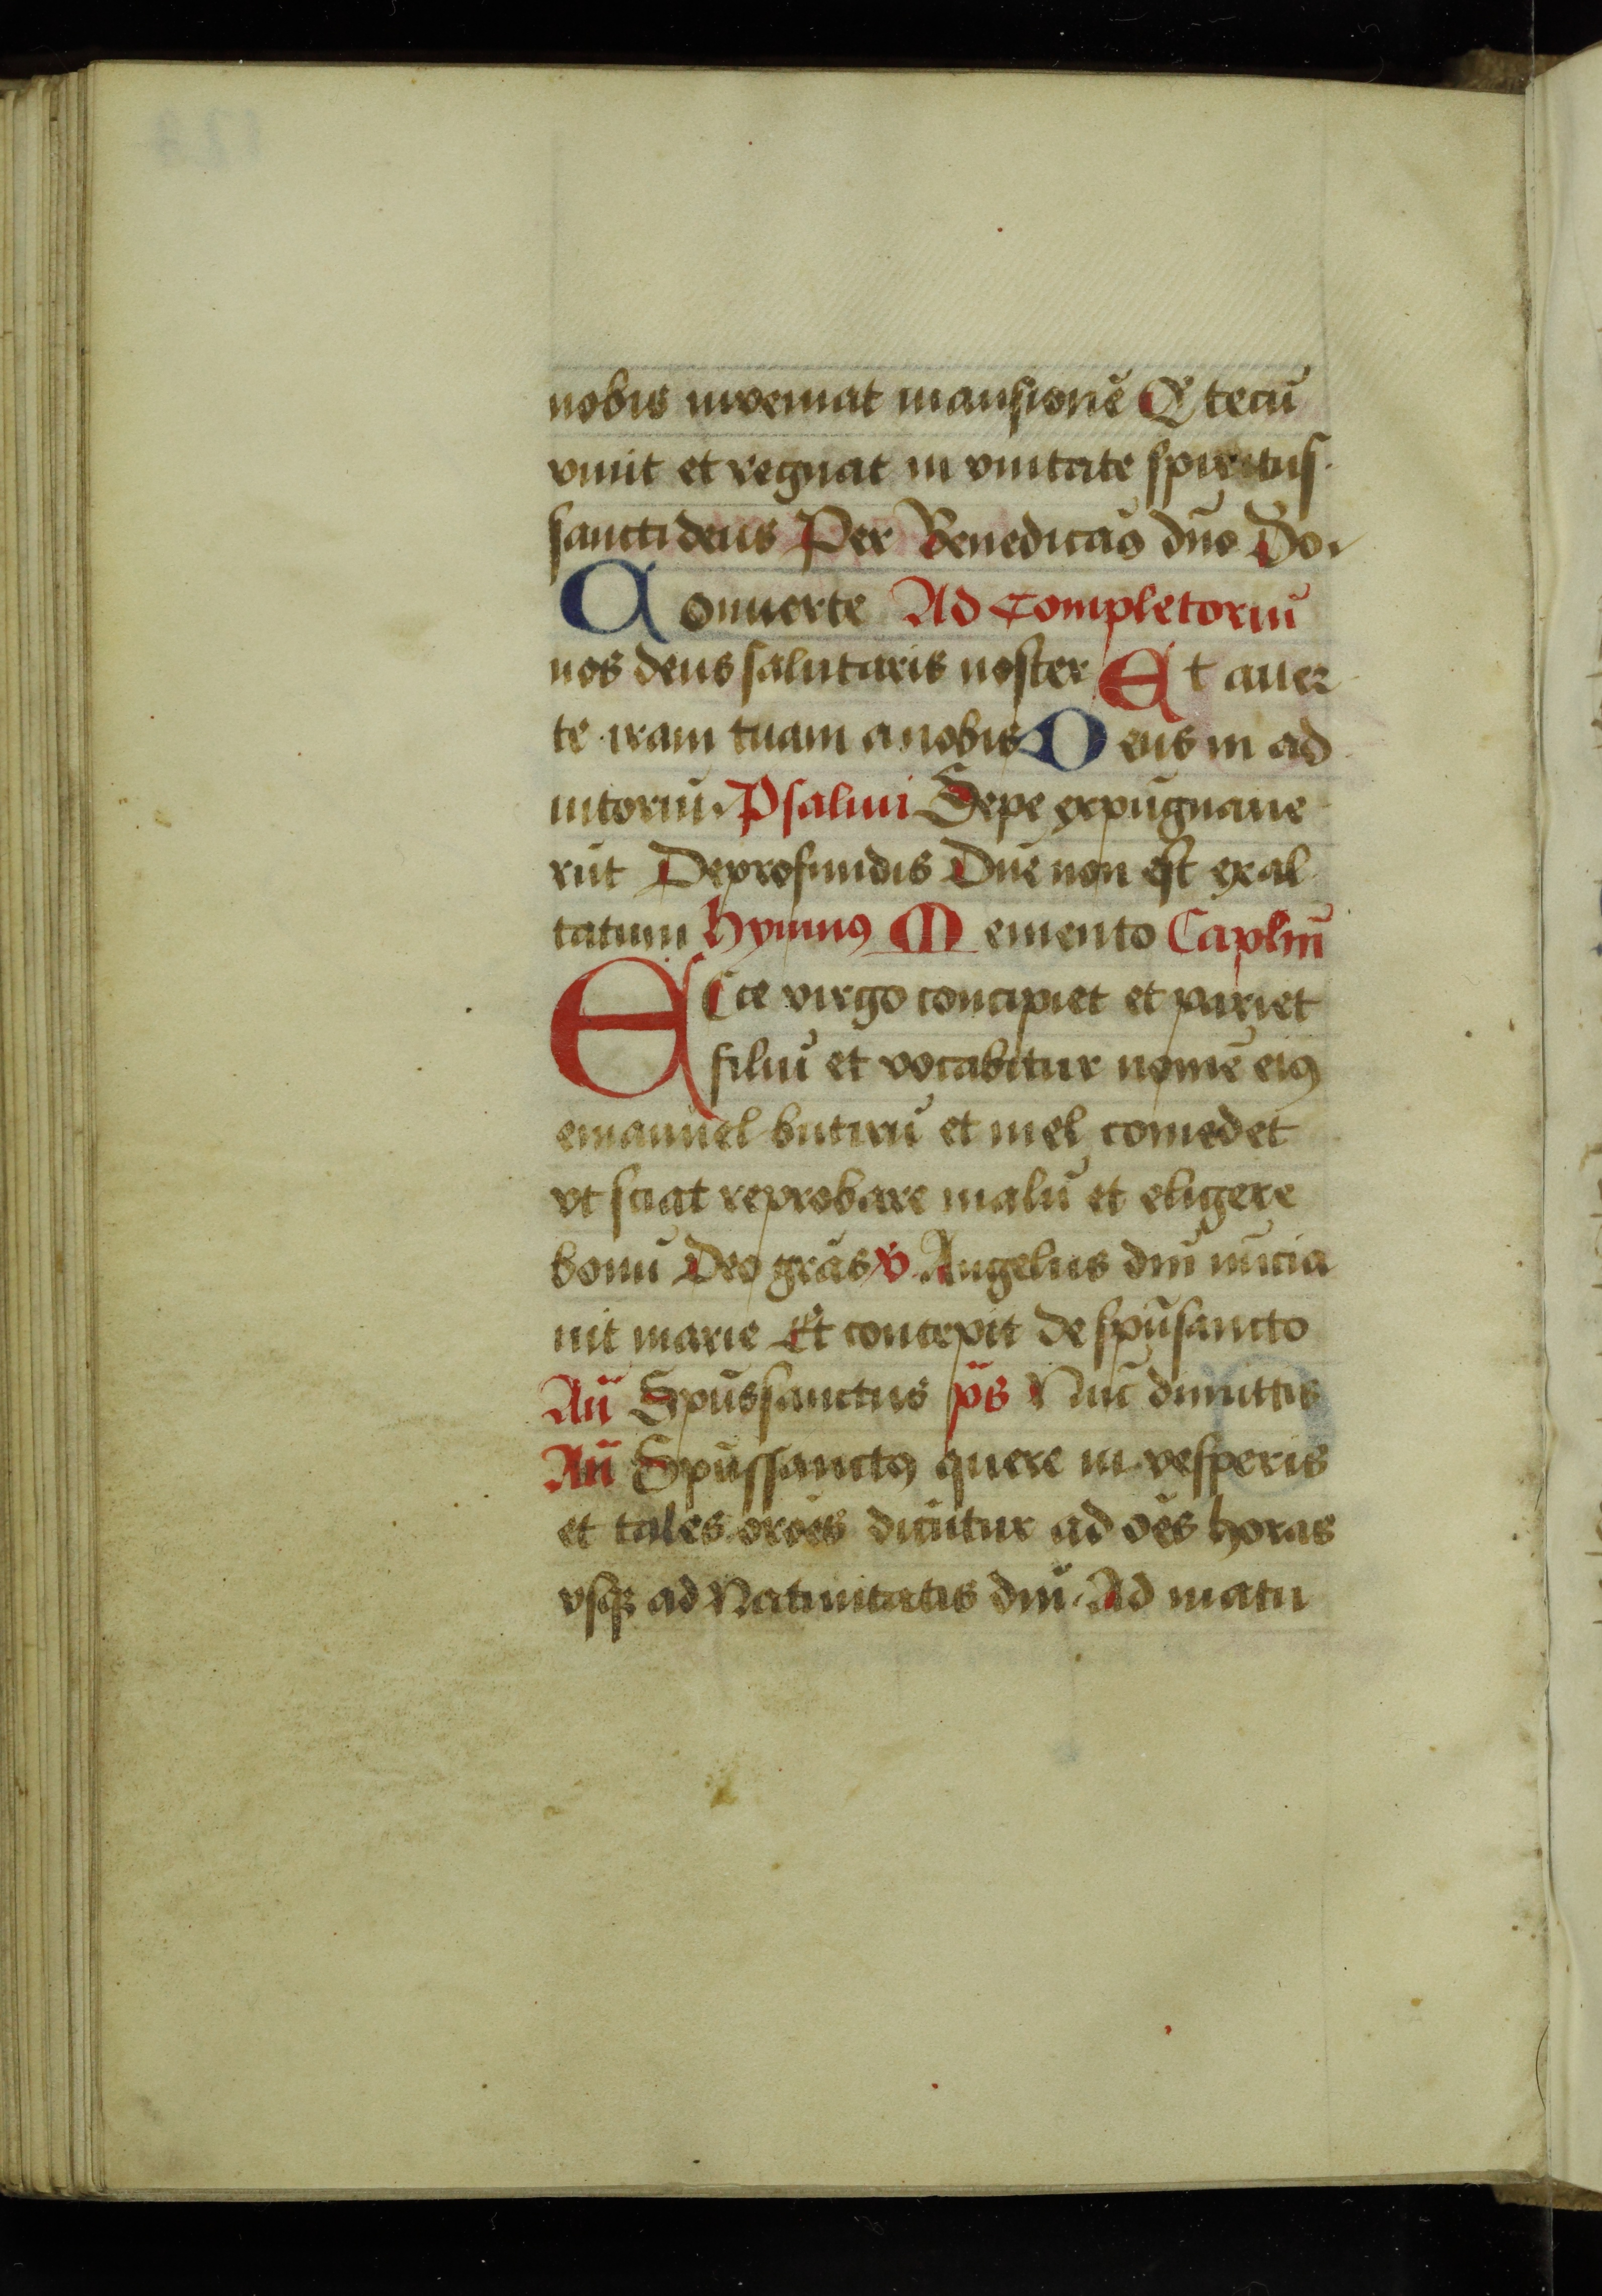 nobis inveniat mansionē Q̄ tecū
viuit et regnat in vnitate spiritus
sancti deus Per Benedicam̄9 dn̄o Do.
Conuerte Ad Completoriū
nos deus salutaris noster Et auer
te iram tuam a nobis Deus in ad
iutoriū. Psalmi Sepe expugnaue
rūt De profundis Dn̄e non est exal
tatum Hymnꝰ Memento Caplm̄
Ecce virgo concipiet et pariet
filiū et vocabitur nomē eiꝰ
emanuel butirū et mel comedet
vt sciat reprobare malū et eligere
bonū Deo grās v̄ Angelus dn̄i nūcia
uit marie Et concepit de spū sancto
An̄ Spūs sanctus p̄s Nūc dimittis
An̄ Spūs sanctꝰ quere in vesperis
et tales orōēs dicūtur ad oēs horas
vsqꝫ ad Natiuitatis dn̄i. Ad matu